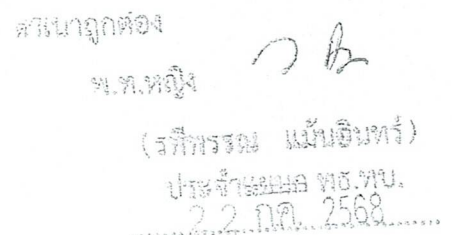 สำเนาถูกต้อง
พ.ท.หญิง
(รทีพรรณ แม้นอินทร์)
ประจำแผนก พธ.ทบ.
22 กค. 2568